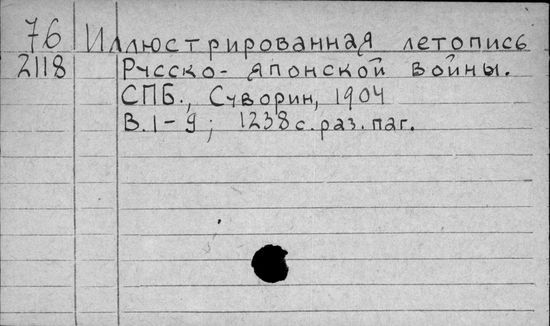 76 Иллюстрированная летопись
2118 Русско-японской войны.
СПБ., Суворин, 1904
В.1-9; 1238 с. раз. паг.